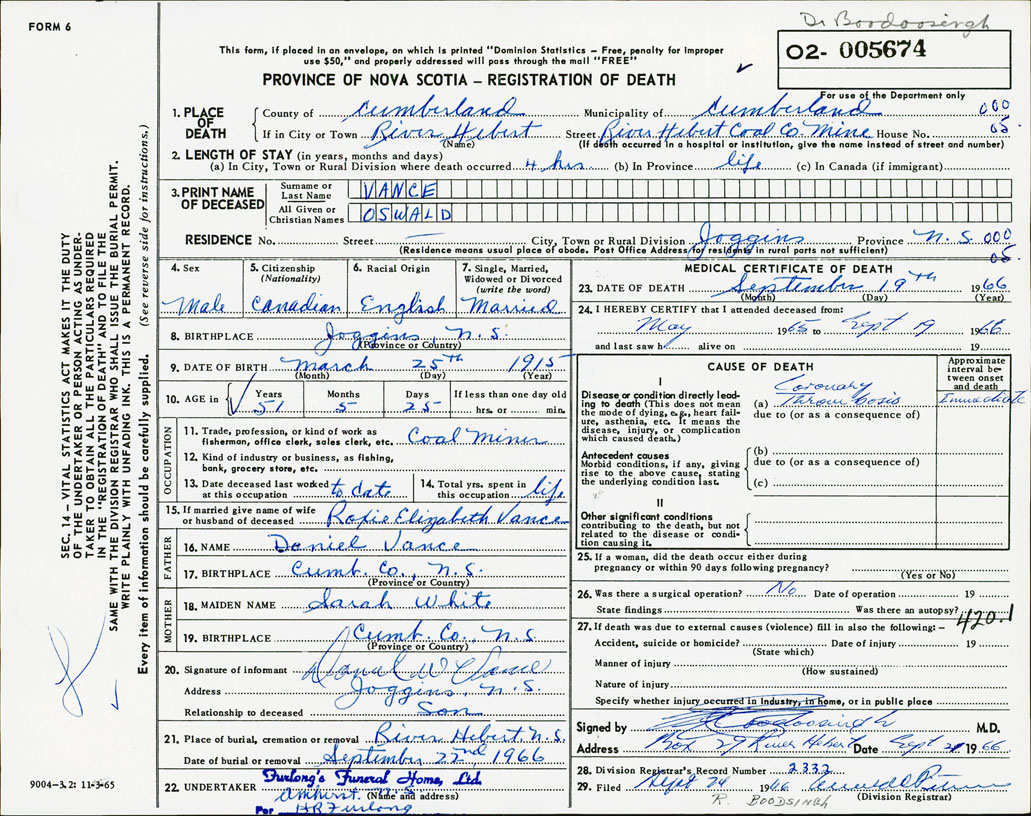 FORM 6
Dr Boodoosingh
This form, if placed in an envelope, on which is printed "Dominion Statistics – Free, penalty for improper
use $50," and properly addressed will pass through the mail "FREE"
02- 005674
PROVINCE OF NOVA SCOTIA – REGISTRATION OF DEATH
For use of the Department only
1. PLACE OF DEATH
County of Cumberland Municipality of Cumberland 000
If in City or Town River Hebert Street River Hebert Coal Co. Mine House No. 05
(Name) (If death occurred in a hospital or institution, give the name instead of street and number)
2. LENGTH OF STAY (in years, months and days)
(a) In City, Town or Rural Division where death occurred 4 hrs (b) In Province life (c) In Canada (if immigrant)
3. PRINT NAME OF DECEASED
Surname or Last Name VANCE
All Given or Christian Names OSWALD
RESIDENCE No. Street — City, Town or Rural Division Joggins Province N.S. 000
(Residence means usual place of abode. Post Office Address for residents in rural parts not sufficient) 05
4. Sex Male
5. Citizenship (Nationality) Canadian
6. Racial Origin English
7. Single, Married, Widowed or Divorced (write the word) Married
8. BIRTHPLACE Joggins, N.S.
(Province or Country)
9. DATE OF BIRTH March 25th 1915
(Month) (Day) (Year)
10. AGE in Years 51 Months 5 Days 25 If less than one day old hrs. or min.
OCCUPATION
11. Trade, profession, or kind of work as fisherman, office clerk, sales clerk, etc. Coal Miner
12. Kind of industry or business, as fishing, bank, grocery store, etc.
13. Date deceased last worked at this occupation to date
14. Total yrs. spent in this occupation life
15. If married give name of wife or husband of deceased Roxie Elizabeth Vance
FATHER
16. NAME Daniel Vance
17. BIRTHPLACE Cumb. Co., N.S.
(Province or Country)
MOTHER
18. MAIDEN NAME Sarah White
19. BIRTHPLACE Cumb. Co., N.S.
(Province or Country)
20. Signature of informant Daniel W Vance
Address Joggins, N.S.
Relationship to deceased Son
21. Place of burial, cremation or removal River Hebert N.S.
Date of burial or removal September 22nd, 1966
22. UNDERTAKER Furlong's Funeral Home, Ltd.
Amherst N.S.
(Name and address)
Per HR Furlong
MEDICAL CERTIFICATE OF DEATH
23. DATE OF DEATH September 19TH 1966
(Month) (Day) (Year)
24. I HEREBY CERTIFY that I attended deceased from:
May 1965 to Sept 19 1966
and last saw h alive on 19
CAUSE OF DEATH
Approximate interval between onset and death
I
Disease or condition directly leading to death (This does not mean the mode of dying, e.g., heart failure, asthenia, etc. It means the disease, injury, or complication which caused death.)
(a) Coronary Thrombosis Immediate
due to (or as a consequence of)
Antecedent causes
Morbid conditions, if any, giving rise to the above cause, stating the underlying condition last.
(b)
due to (or as a consequence of)
(c)
II
Other significant conditions
contributing to the death, but not related to the disease or condition causing it.
25. If a woman, did the death occur either during
pregnancy or within 90 days following pregnancy?
(Yes or No)
26. Was there a surgical operation? No Date of operation 19
State findings Was there an autopsy?
420.1
27. If death was due to external causes (violence) fill in also the following: –
Accident, suicide or homicide? Date of injury 19
(State which)
Manner of injury
(How sustained)
Nature of injury
Specify whether injury occurred in industry, in home, or in public place
Signed by Boodoosingh M.D.
Address Box 29 River Hebert Date Sept 21 1966
28. Division Registrar's Record Number 2332
29. Filed Sept 24 1966
(Division Registrar)
R. BOODSINGH
SEC. 14 – VITAL STATISTICS ACT MAKES IT THE DUTY
OF THE UNDERTAKER OR PERSON ACTING AS UNDER-
TAKER TO OBTAIN ALL THE PARTICULARS REQUIRED
IN THE "REGISTRATION OF DEATH" AND TO FILE THE
SAME WITH THE DIVISION REGISTRAR WHO SHALL ISSUE THE BURIAL PERMIT.
WRITE PLAINLY WITH UNFADING INK. THIS IS A PERMANENT RECORD.
Every item of information should be carefully supplied. (See reverse side for instructions.)
9004–3.2: 11-3-65